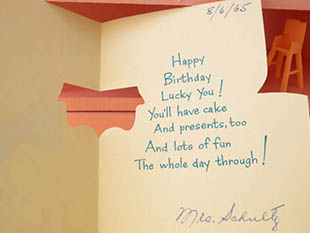 8/6/65
Happy
Birthday
Lucky You!
You'll have cake
And presents, too
And lots of fun
The whole day through!
Mrs. Schultz